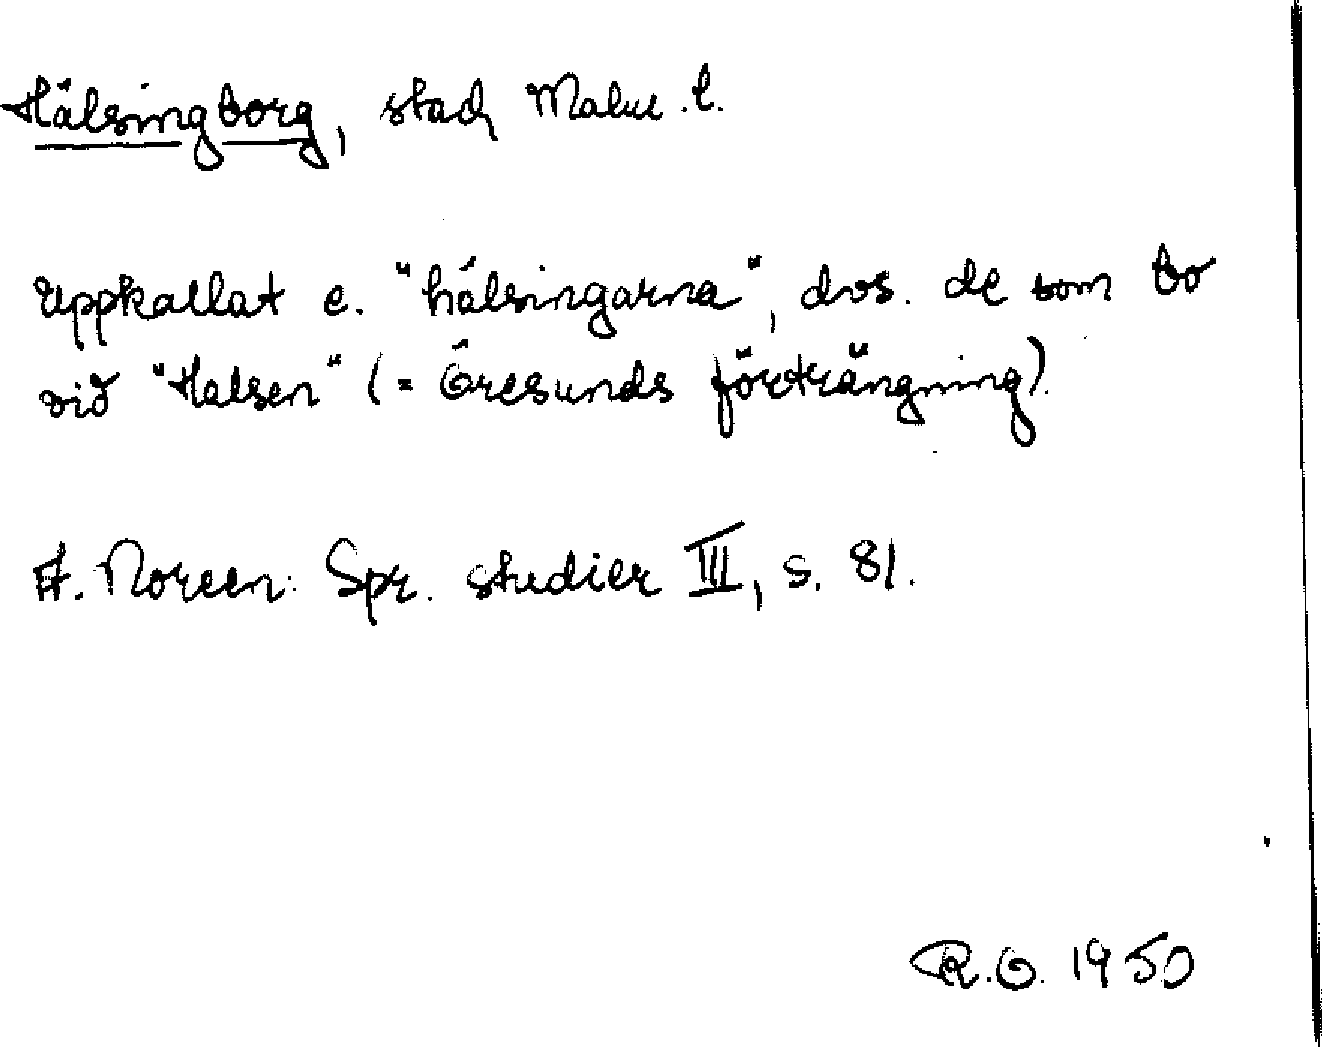 Hälsingborg, stad, Malm. l.
Uppkallat e. "hälsingarna", dvs. de som bo
vid "Halsen" (= Öresunds förträngning).
A. Noreen: Spr. studier III, s. 81.
R.O. 1950